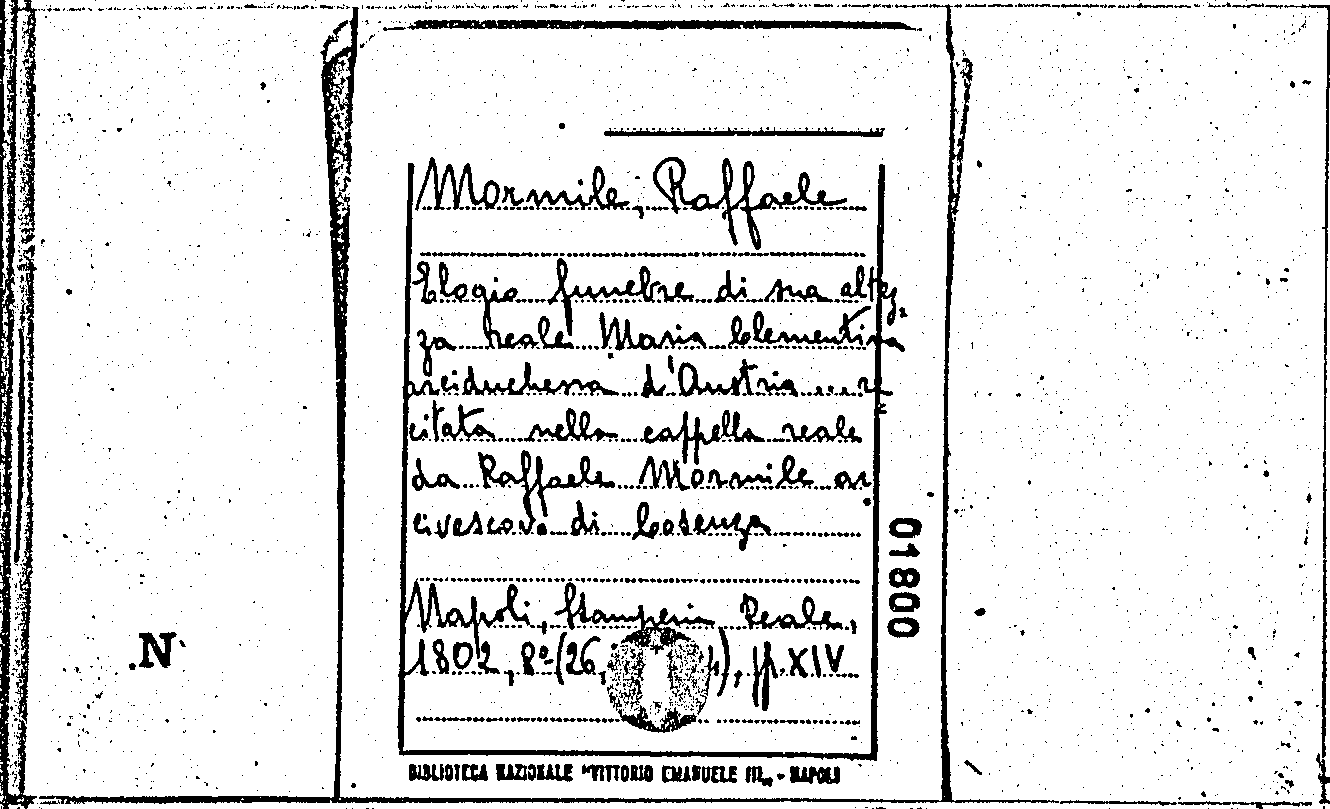 Mormile, Raffaele
Elogio funebre di sua altez
za reale Maria Clementina
arciduchessa d'Austria ... re
citata nella cappella reale
da Raffaele Mormile ar
civescovo di Cosenza
Napoli, Stamperia Reale,
1802, 8º (26, ), pp. XIV
01800
.N
BIBLIOTECA NAZIONALE "VITTORIO EMANUELE III„ - NAPOLI